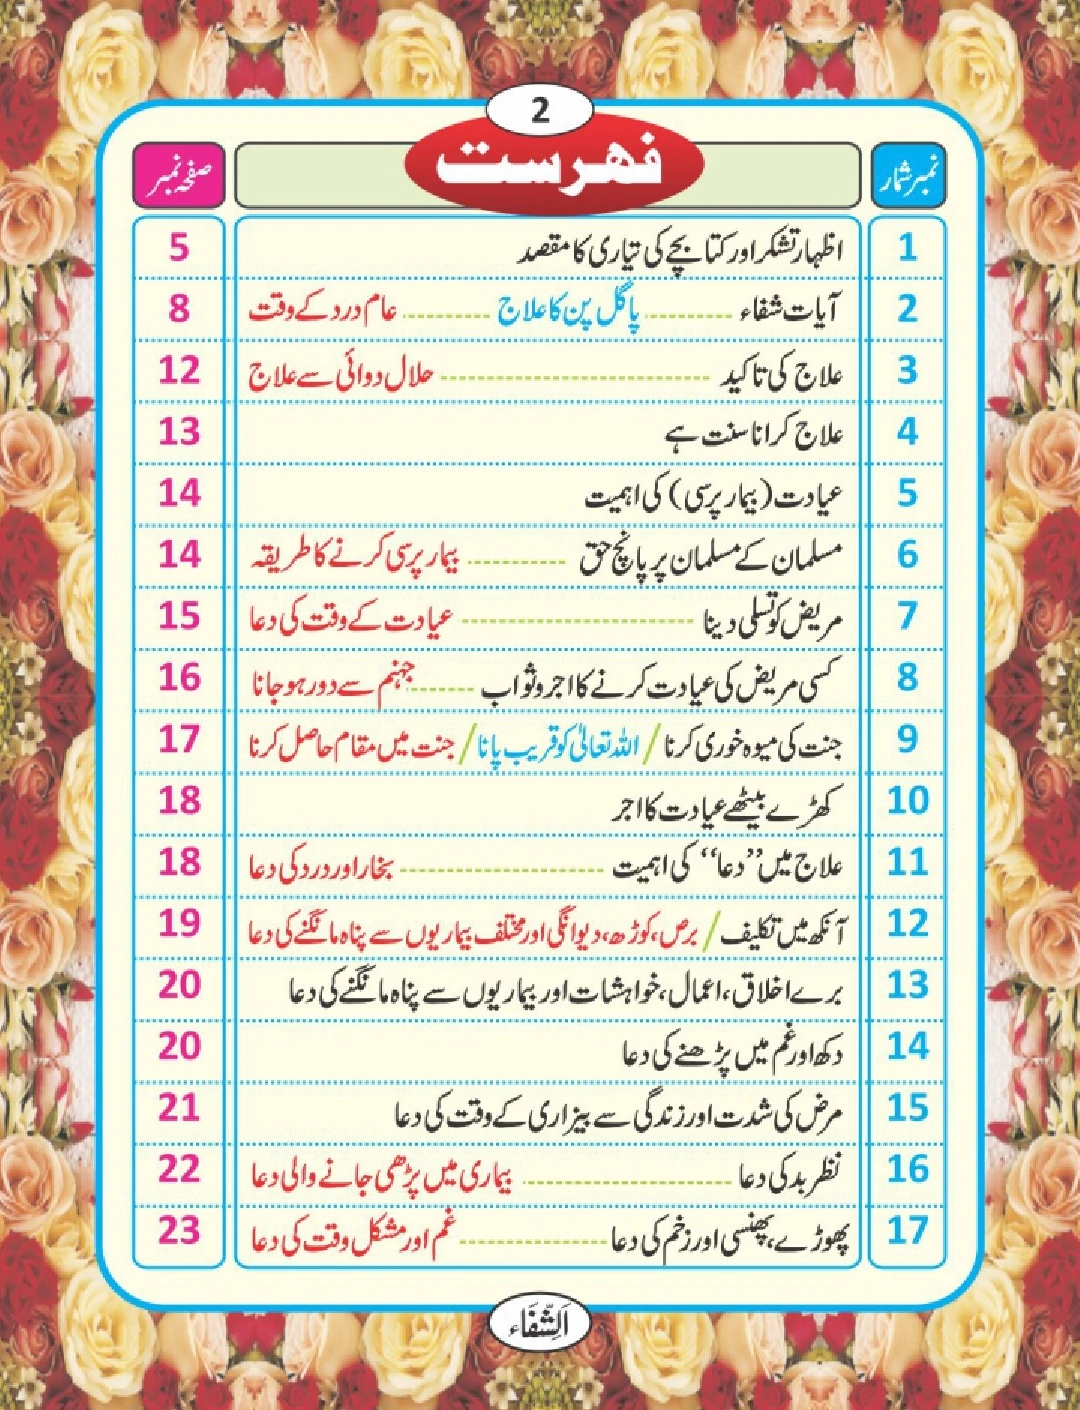 2
فہرست
نمبر شمار صفحہ نمبر
1 اظہار تشکر اور کتابچے کی تیاری کا مقصد 5
2 آیات شفاء ---------- پاگل پن کا علاج ---------- عام درد کے وقت 8
3 علاج کی تاکید ---------- حلال دوائی سے علاج 12
4 علاج کرانا سنت ہے 13
5 عیادت (بیمار پرسی) کی اہمیت 14
6 مسلمان کے مسلمان پر پانچ حق ---------- بیمار پرسی کرنے کا طریقہ 14
7 مریض کو تسلی دینا ---------- عیادت کے وقت کی دعا 15
8 کسی مریض کی عیادت کرنے کا اجر و ثواب ------- جہنم سے دور ہو جانا 16
9 جنت کی میوہ خوری کرنا / اللہ تعالیٰ کو قریب پانا / جنت میں مقام حاصل کرنا 17
10 کھڑے بیٹھے عیادت کا اجر 18
11 علاج میں ”دعا“ کی اہمیت ---------- بخار اور درد کی دعا 18
12 آنکھ میں تکلیف / برص، کوڑھ، دیوانگی اور مختلف بیماریوں سے پناہ مانگنے کی دعا 19
13 برے اخلاق، اعمال، خواہشات اور بیماریوں سے پناہ مانگنے کی دعا 20
14 دکھ اور غم میں پڑھنے کی دعا 20
15 مرض کی شدت اور زندگی سے بیزاری کے وقت کی دعا 21
16 نظر بد کی دعا ---------- بیماری میں پڑھی جانے والی دعا 22
17 پھوڑے، پھنسی اور زخم کی دعا ---------- غم اور مشکل وقت کی دعا 23
اَلشِّفَاء